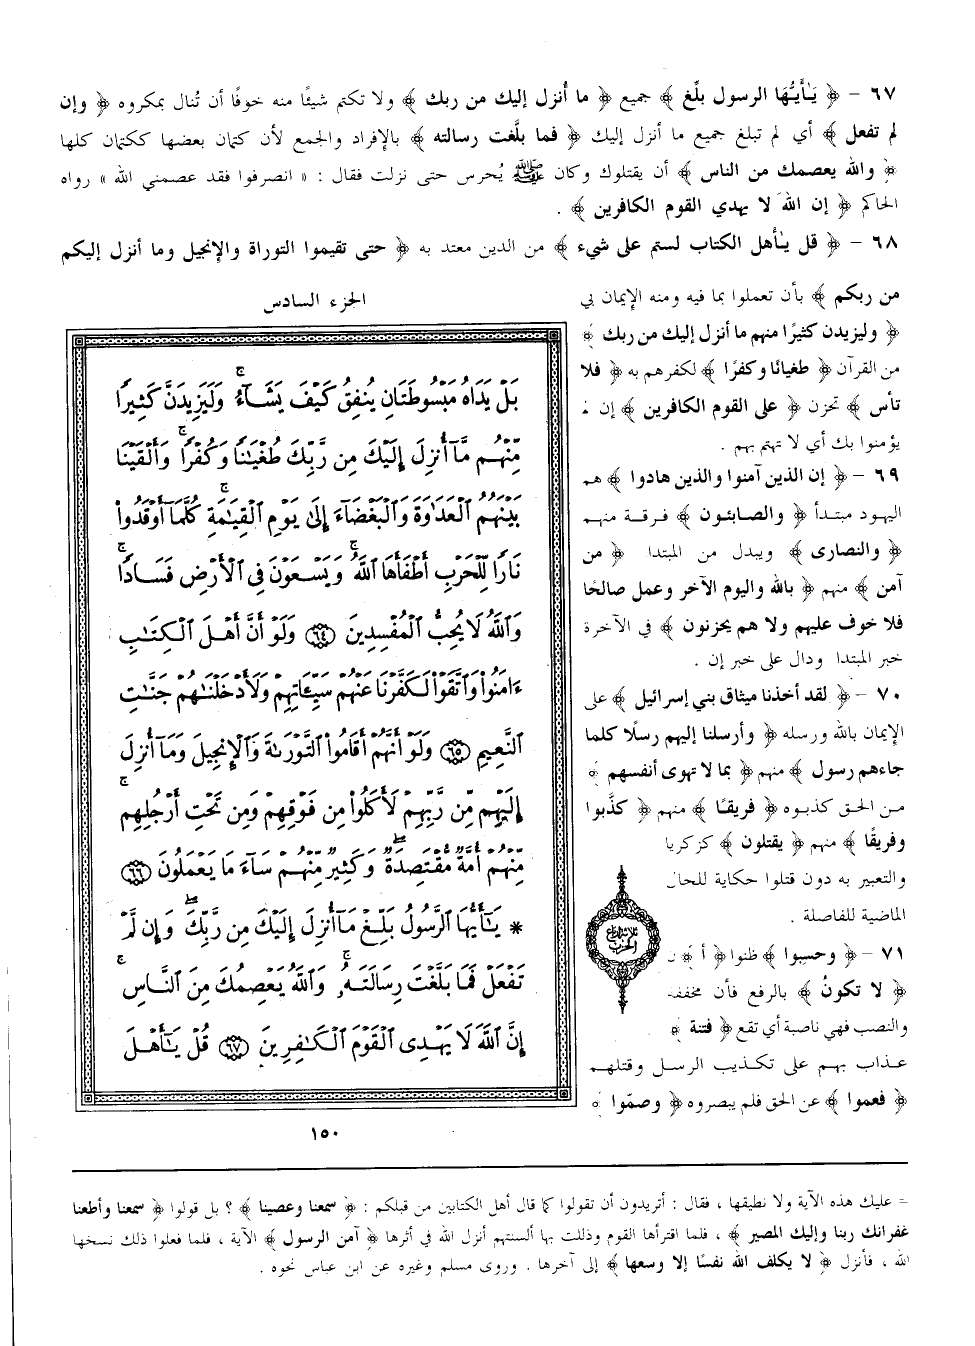 ٦٧ – ﴿ يٰأَيُّهَا الرسول بلِّغ ﴾ جميع ﴿ ما أُنزل إليك من ربك ﴾ ولا تكتم شيئًا منه خوفًا أن تُنال بمكروه ﴿ وإن
لم تفعل ﴾ أي لم تبلغ جميع ما أنزل إليك ﴿ فما بلَّغت رسالته ﴾ بالإفراد والجمع لأن كتمان بعضها ككتمان كلها
﴿ والله يعصمك من الناس ﴾ أن يقتلوك وكان ﷺ يُحرس حتى نزلت فقال : « انصرفوا فقد عصمني الله » رواه
الحاكم ﴿ إن الله لا يهدي القوم الكافرين ﴾ .
٦٨ – ﴿ قل يٰأهل الكتاب لستم على شيء ﴾ من الدين معتد به ﴿ حتى تقيموا التوراة والإنجيل وما أنزل إليكم
من ربكم ﴾ بأن تعملوا بما فيه ومنه الإيمان بي
﴿ وليزيدن كثيرًا منهم ما أنزل إليك من ربك ﴾
من القرآن ﴿ طغيانًا وكفرًا ﴾ لكفرهم به ﴿ فلا
تأس ﴾ تحزن ﴿ على القوم الكافرين ﴾ إن لم
يؤمنوا بك أي لا تهتم بهم .
٦٩ – ﴿ إن الذين آمنوا والذين هادوا ﴾ هم
اليهود مبتدأ ﴿ والصابئون ﴾ فرقة منهم
﴿ والنصارى ﴾ ويبدل من المبتدا ﴿ من
آمن ﴾ منهم ﴿ بالله واليوم الآخر وعمل صالحًا
فلا خوف عليهم ولا هم يحزنون ﴾ في الآخرة
خبر المبتدا ودال على خبر إن .
٧٠ – ﴿ لقد أخذنا ميثاق بني إسرائيل ﴾ على
الإيمان بالله ورسله ﴿ وأرسلنا إليهم رسلًا كلما
جاءهم رسول ﴾ منهم ﴿ بما لا تهوى أنفسهم ﴾
من الحق كذبوه ﴿ فريقًا ﴾ منهم ﴿ كذَّبوا
وفريقًا ﴾ منهم ﴿ يقتلون ﴾ كزكريا
والتعبير به دون قتلوا حكاية للحال
الماضية للفاصلة .
٧١ – ﴿ وحسبوا ﴾ ظنوا ﴿ أ ﴾ ن
﴿ لا تكونُ ﴾ بالرفع فأن مخففة
والنصب فهي ناصبة أي تقع ﴿ فتنة ﴾
عذاب بهم على تكذيب الرسل وقتلهم
﴿ فعموا ﴾ عن الحق فلم يبصروه ﴿ وصمّوا ﴾
الجزء السادس
بَلْ يَدَاهُ مَبْسُوطَتَانِ يُنفِقُ كَيْفَ يَشَآءُ ۚ وَلَيَزِيدَنَّ كَثِيرًا
مِّنْهُم مَّآ أُنزِلَ إِلَيْكَ مِن رَّبِّكَ طُغْيَٰنًا وَكُفْرًا ۚ وَأَلْقَيْنَا
بَيْنَهُمُ ٱلْعَدَٰوَةَ وَٱلْبَغْضَآءَ إِلَىٰ يَوْمِ ٱلْقِيَٰمَةِ ۚ كُلَّمَآ أَوْقَدُوا۟
نَارًا لِّلْحَرْبِ أَطْفَأَهَا ٱللَّهُ ۚ وَيَسْعَوْنَ فِى ٱلْأَرْضِ فَسَادًا ۚ
وَٱللَّهُ لَا يُحِبُّ ٱلْمُفْسِدِينَ ﴿٦٤﴾ وَلَوْ أَنَّ أَهْلَ ٱلْكِتَٰبِ
ءَامَنُوا۟ وَٱتَّقَوْا۟ لَكَفَّرْنَا عَنْهُمْ سَيِّـَٔاتِهِمْ وَلَأَدْخَلْنَٰهُمْ جَنَّٰتِ
ٱلنَّعِيمِ ﴿٦٥﴾ وَلَوْ أَنَّهُمْ أَقَامُوا۟ ٱلتَّوْرَىٰةَ وَٱلْإِنجِيلَ وَمَآ أُنزِلَ
إِلَيْهِم مِّن رَّبِّهِمْ لَأَكَلُوا۟ مِن فَوْقِهِمْ وَمِن تَحْتِ أَرْجُلِهِم ۚ
مِّنْهُمْ أُمَّةٌ مُّقْتَصِدَةٌ ۖ وَكَثِيرٌ مِّنْهُمْ سَآءَ مَا يَعْمَلُونَ ﴿٦٦﴾
* يَٰٓأَيُّهَا ٱلرَّسُولُ بَلِّغْ مَآ أُنزِلَ إِلَيْكَ مِن رَّبِّكَ ۖ وَإِن لَّمْ
تَفْعَلْ فَمَا بَلَّغْتَ رِسَالَتَهُۥ ۚ وَٱللَّهُ يَعْصِمُكَ مِنَ ٱلنَّاسِ ۗ
إِنَّ ٱللَّهَ لَا يَهْدِى ٱلْقَوْمَ ٱلْكَٰفِرِينَ ﴿٦٧﴾ قُلْ يَٰٓأَهْلَ
١٥٠
= عليك هذه الآية ولا نطيقها ، فقال : أتريدون أن تقولوا كما قال أهل الكتابين من قبلكم : ﴿ سمعنا وعصينا ﴾ ؟ بل قولوا ﴿ سمعنا وأطعنا
غفرانك ربنا وإليك المصير ﴾ ، فلما اقترأها القوم وذلت بها ألسنتهم أنزل الله في أثرها ﴿ آمن الرسول ﴾ الآية ، فلما فعلوا ذلك نسخها
الله ، فأنزل ﴿ لا يكلف الله نفسًا إلا وسعها ﴾ إلى آخرها . وروى مسلم وغيره عن ابن عباس نحوه .